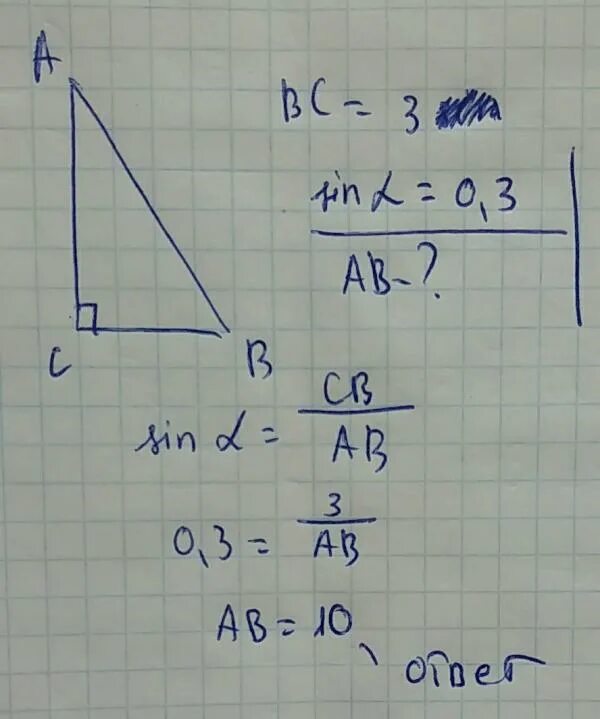 A
BC = 3
sin α = 0,3
AB - ?
C
B
sin α = CB / AB
0,3 = 3 / AB
AB = 10,
ответ